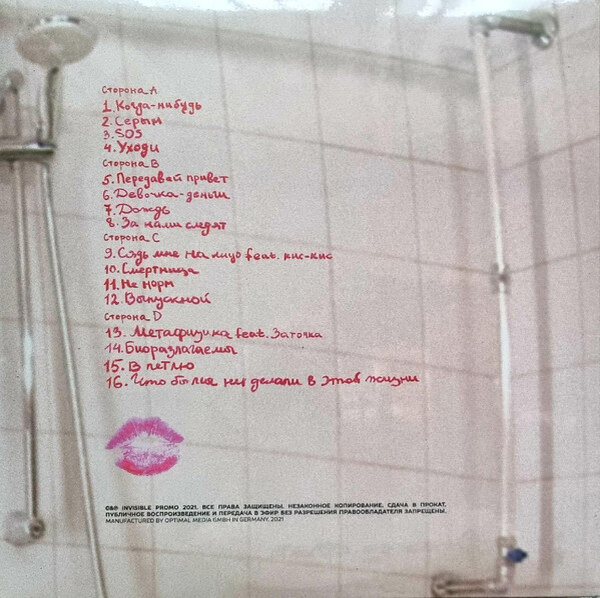 Сторона A
1. Когда-нибудь
2. Серым
3. SOS
4. Уходи
Сторона B
5. Передавай привет
6. Девочка-деньги
7. Дождь
8. За нами следят
Сторона C
9. Сядь мне на лицо feat. кис-кис
10. Смертница
11. Не норм
12. Выпускной
Сторона D
13. Метафизика feat. Заточка
14. Биоразлагаемы
15. В петлю
16. Что бы мы ни делали в этой жизни
©&℗ INVISIBLE PROMO 2021. ВСЕ ПРАВА ЗАЩИЩЕНЫ. НЕЗАКОННОЕ КОПИРОВАНИЕ, СДАЧА В ПРОКАТ,
ПУБЛИЧНОЕ ВОСПРОИЗВЕДЕНИЕ И ПЕРЕДАЧА В ЭФИР БЕЗ РАЗРЕШЕНИЯ ПРАВООБЛАДАТЕЛЯ ЗАПРЕЩЕНЫ.
MANUFACTURED BY OPTIMAL MEDIA GMBH IN GERMANY, 2021